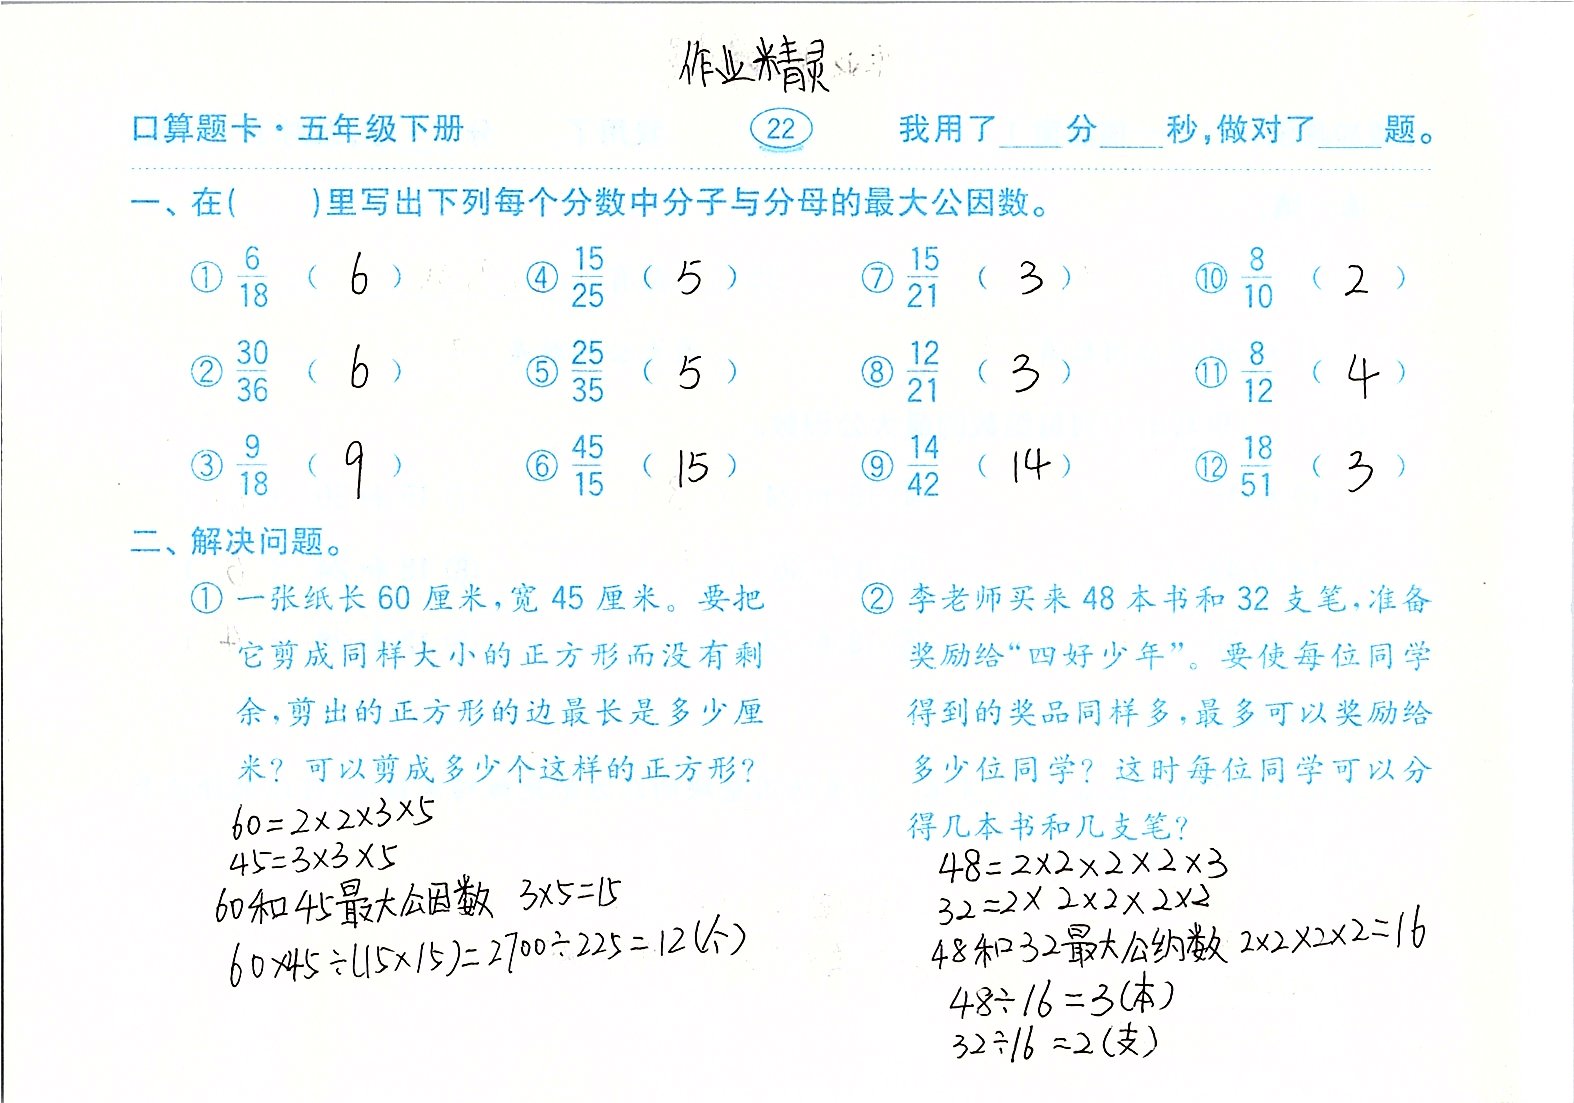 作业精灵
口算题卡·五年级下册 22 我用了____分____秒,做对了____题。
一、在(    )里写出下列每个分数中分子与分母的最大公因数。
① 6/18 ( 6 ) ④ 15/25 ( 5 ) ⑦ 15/21 ( 3 ) ⑩ 8/10 ( 2 )
② 30/36 ( 6 ) ⑤ 25/35 ( 5 ) ⑧ 12/21 ( 3 ) ⑪ 8/12 ( 4 )
③ 9/18 ( 9 ) ⑥ 45/15 ( 15 ) ⑨ 14/42 ( 14 ) ⑫ 18/51 ( 3 )
二、解决问题。
① 一张纸长 60 厘米,宽 45 厘米。要把
它剪成同样大小的正方形而没有剩
余,剪出的正方形的边最长是多少厘
米? 可以剪成多少个这样的正方形?
60=2×2×3×5
45=3×3×5
60和45最大公因数 3×5=15
60×45÷(15×15)=2700÷225=12(个)
② 李老师买来 48 本书和 32 支笔,准备
奖励给“四好少年”。要使每位同学
得到的奖品同样多,最多可以奖励给
多少位同学? 这时每位同学可以分
得几本书和几支笔?
48=2×2×2×2×3
32=2×2×2×2×2
48和32最大公约数 2×2×2×2=16
48÷16=3(本)
32÷16=2(支)